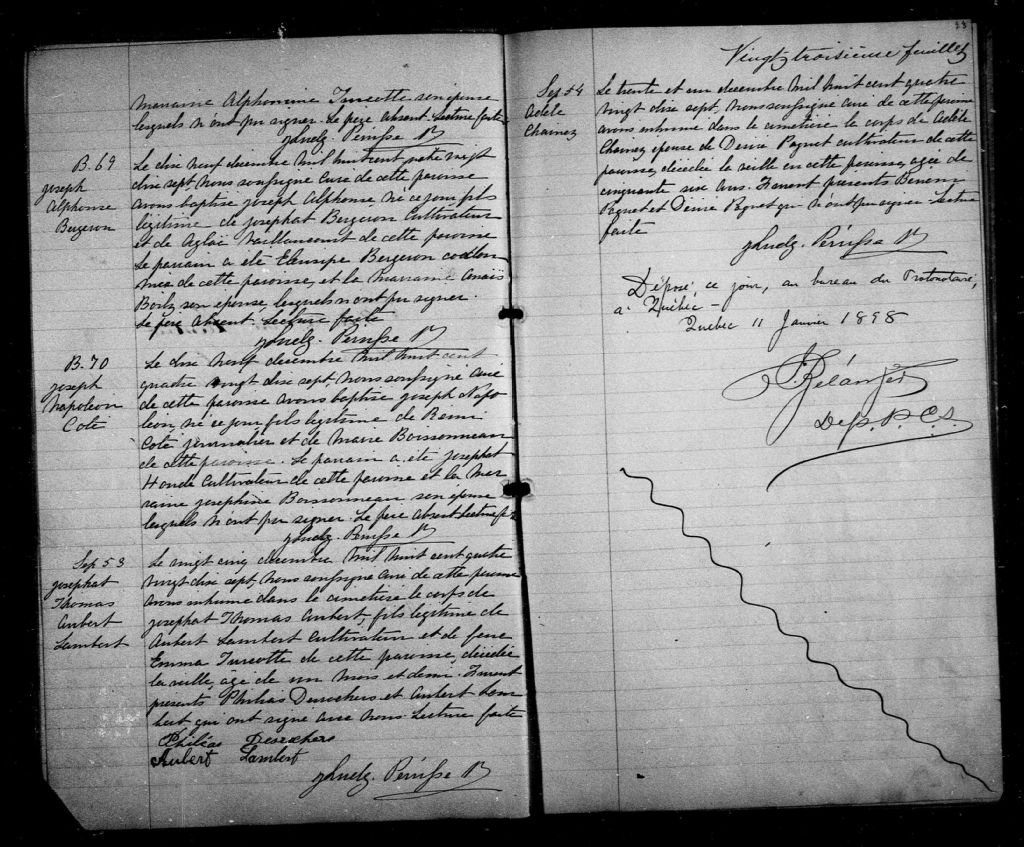 marraine Alphonsine Turcotte son épouse
lesquels n'ont pu signer. Le père absent. Lecture faite
B. 69
Joseph
Alphonse
Bergeron
Le dix neuf decembre mil huit cent quatre vingt
dix sept, nous soussigné curé de cette paroisse
avons baptisé Joseph Alphonse, né ce jour fils
légitime de Josephat Bergeron cultivateur
et de Aglaé Vaillancourt de cette paroisse
Le parrain a été Bergeron
de cette paroisse, et la marraine Anaïs
son épouse, lesquels n'ont pu signer.
Le père absent. Lecture faite
B. 70
Joseph
Napoleon
Coté
Le dix neuf decembre mil huit cent
quatre vingt dix sept, nous soussigné curé
de cette paroisse avons baptisé Joseph Napo
leon, né ce jour fils légitime de Remi
Coté journalier et de Marie Boissonneau
de cette paroisse. Le parrain a été Josephat
cultivateur de cette paroisse et la mar
raine Josephine Boissonneau son épouse
lesquels n'ont pu signer. Le père absent. Lecture
Sep. 53
Josephat
Thomas
Aubert
Lambert
Le vingt cinq decembre mil huit cent quatre
vingt dix sept, nous soussigné curé de cette paroisse
avons inhumé dans le cimetière le corps de
Josephat Thomas Aubert, fils légitime de
Aubert Lambert cultivateur et de feue
Emma Turcotte de cette paroisse, décédé
la veille, âgé de un mois et demi. Furent
présents Philéas Desrochers et Aubert Lam
bert qui ont signé avec nous. Lecture faite
Philéas Desrochers
Aubert Lambert
23
Vingt troisième feuillet
Sep. 54
Adèle
Chainez
Le trente et un decembre mil huit cent quatre
vingt dix sept, nous soussigné curé de cette paroisse
avons inhumé dans le cimetière le corps de Adèle
Chainez épouse de Désiré Paquet cultivateur de cette
paroisse, décédée la veille en cette paroisse, agée de
cinquante six ans. Furent présents
Paquet et Désiré Paquet qui n'ont pu signer. Lecture
faite
Déposé ce jour, au bureau du Protonotaire,
à Québec –
Québec 11 Janvier 1898
Bélanger
Dep. P. C. S.